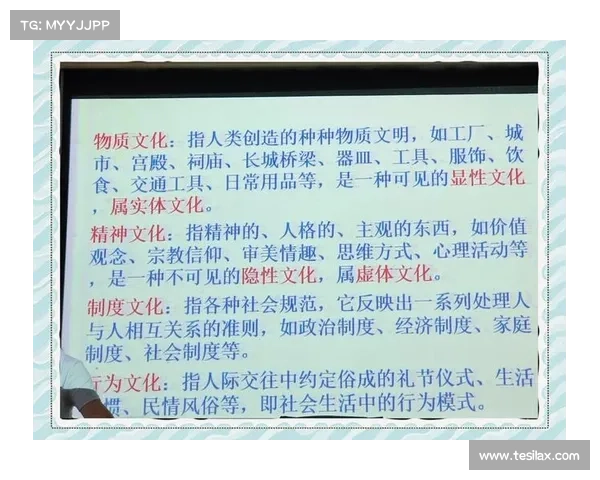 TG: MYYJJPP
物质文化：指人类创造的种种物质文明，如工厂、城
市、宫殿、祠庙、长城桥梁、器皿、工具、服饰、饮
食、交通工具、日常用品等，是一种可见的显性文化
，属实体文化。
精神文化：指精神的、人格的、主观的东西，如价值
观念、宗教信仰、审美情趣、思维方式、心理活动等
，是一种不可见的隐性文化，属虚体文化。
制度文化：指各种社会规范，它反映出一系列处理人
与人相互关系的准则，如政治制度、经济制度、家庭
制度、社会制度等。
行为文化：指人际交往中约定俗成的礼节仪式、生活
惯、民情风俗等，即社会生活中的行为模式。
www.tesilax.com